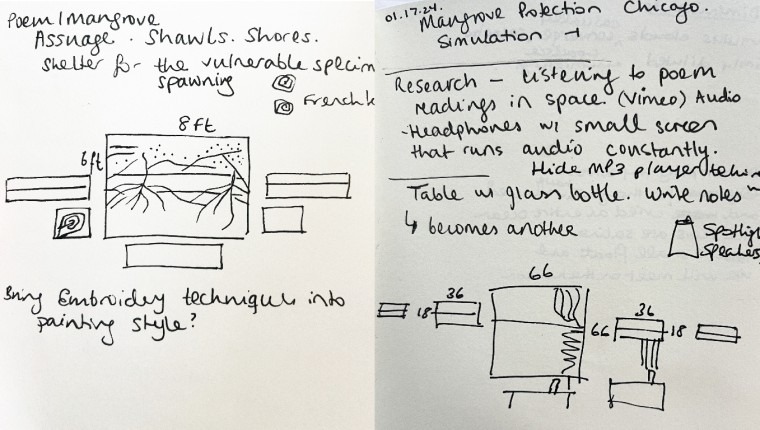 Poem/Mangrove
Assuage. Shawls. Shores.
Shelter for the vulnerable specim
spawning
French k
8ft
6ft
Bring Embroidery techniques into
painting style?
01.17.24. Mangrove Projection Chicago.
Simulation +
Research - Listening to poem
readings in space. (Vimeo) Audio
- Headphones w/ small screen
that runs audio constantly.
Hide MP3 player/
Table w/ glass bottle. Write notes
↳ becomes another
Spotligh
Speaker
66
36
18
66
36
18